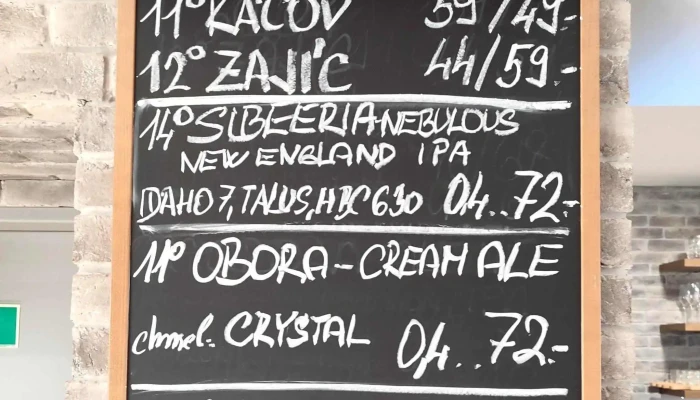 11° KÁCOV 39/49.-
12° ZAJÍC 44/59.-
14° SIBEERIA NEBULOUS
NEW ENGLAND IPA
IDAHO 7, TALUS, HBC 630 0,4..72.-
11° OBORA - CREAM ALE
chmel: CRYSTAL 0,4..72.-